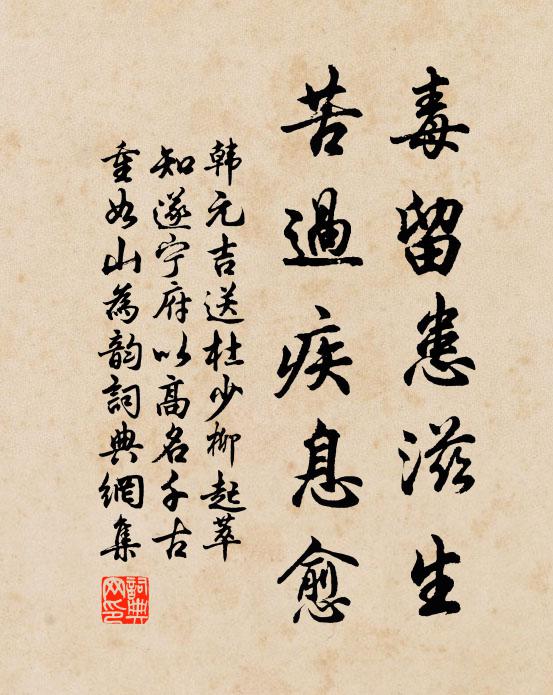 毒留患滋生
苦過疾息愈
韩元吉送杜少柳起莘
知遂宁府以高名千古
重如山為韵詞典網集
詞典网印